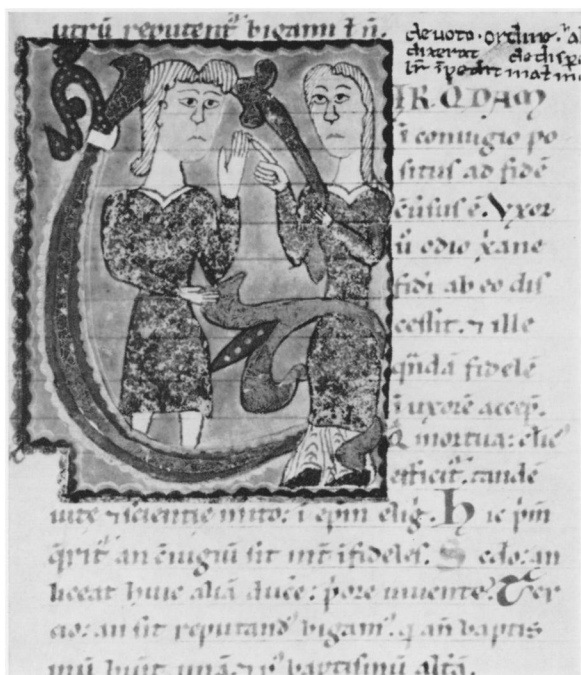 utrū reputent᷑ bigami ł ñ.
de voto. ordine.
dixerat
IR. QDAM
ī coniugio po
situs ad fidē
cūsus ē. Vxor
ū odio x̄ane
fidi ab eo dis
cessit. ⁊ ille
qn̄dā fidelē
ī uxorē accep̄.
Q mortua: clic᷑
efficit᷑. tandē
uite ⁊ scientie mito: ī ep̄m elig̃. Hic p̄m
q̄rit᷑ an c̄iugiū sit int̄ īfideles. Scdo: an
liceat huic aliā duc̄e: p̄ore uiuente. Ter
cio: an sit reputand᷑ bigam᷑. q an̄ baptis
mū huit unā. ⁊ p᷑ baptismū altā.